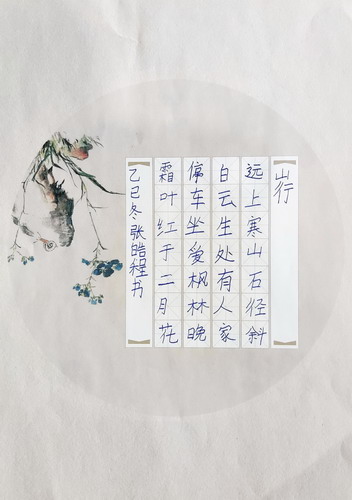 山行
远上寒山石径斜
白云生处有人家
停车坐爱枫林晚
霜叶红于二月花
乙巳冬张皓程书